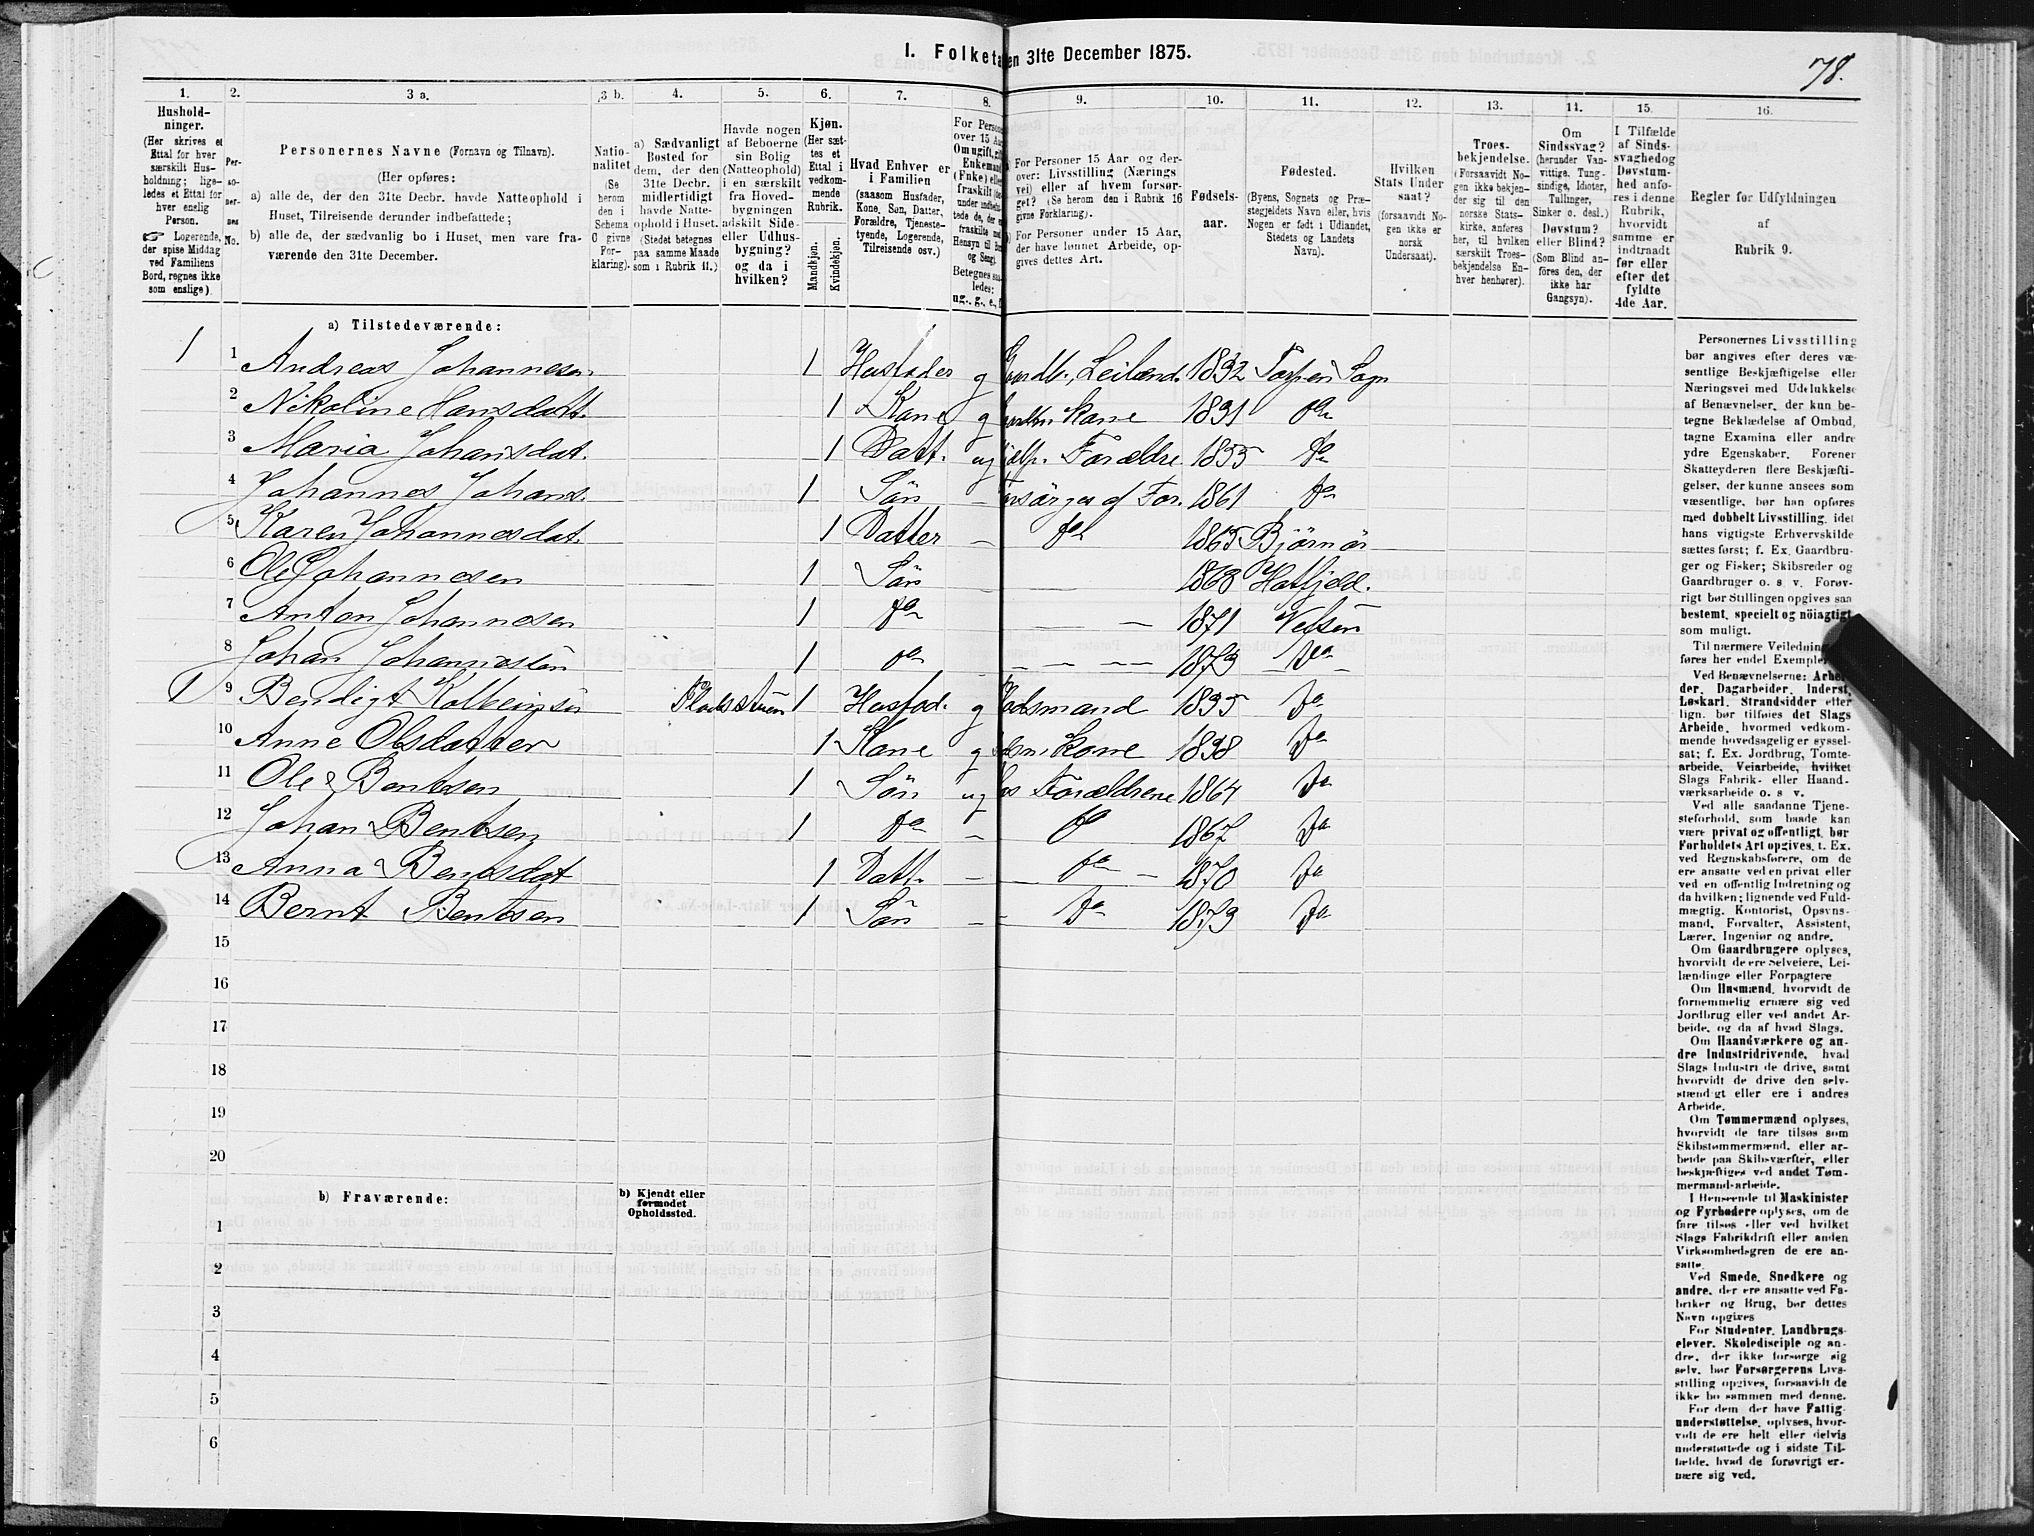 I. Folketa en 31te December 1875.
78.
1.
Hushold-
ninger.
(Her skrives et
Ettal for hver
særskilt Hus-
holdning; lige-
ledes et Ettal for
hver enslig
Person.
Logerende,
der spise Middag
ved Familiens
Bord, regnes ikke
som enslige).
2.
Per-
so-
ner-
nes
No.
3 a.
Personernes Navne (Fornavn og Tilnavn).
(Her opføres:
a) alle de, der den 31te Decbr. havde Natteophold i
Huset, Tilreisende derunder indbefattede;
b) alle de, der sædvanlig bo i Huset, men vare fra-
værende den 31te December.
3 b.
Natio-
nalitet
(Se
herom
den i
Schema
C givne
For-
klaring).
4.
a) Sædvanligt
Bosted for
dem, der den
31te Decbr.
midlertidigt
havde Natte-
ophold i Huset.
(Stedet betegnes
paa samme Maade
som i Rubrik 11.)
5.
Havde nogen
af Beboerne
sin Bolig
(Natteophold)
i en særskilt
fra Hoved-
bygningen
adskilt Side-
eller Udhus-
bygning?
og da i
hvilken?
6.
Kjøn.
(Her sæt-
tes et
Ettal i
vedkom-
mende
Rubrik.
Mandkjøn.
Kvindekjøn.
7.
Hvad Enhver er
i Familien
(saasom Husfader,
Kone, Søn, Datter,
Forældre, Tjeneste-
tyende, Logerende,
Tilreisende osv.)
8.
For Persone
over 15 Aar
Om ugift, gift
Enkemand
(Enke) eller
fraskilt
Betegnes saa-
ledes:
ug., g., e., f.
9.
For Personer 15 Aar og der-
over: Livsstilling (Nærings
vei) eller af hvem forsør-
get? (Se herom den i Rubrik 16
givne Forklaring).
For Personer under 15 Aar,
der have lønnet Arbeide, op-
gives dettes Art.
10.
Fødsels-
aar.
11.
Fødested.
(Byens, Sognets og Præ-
stegjeldets Navn eller, hvis
Nogen er født i Udlandet,
Stedets og Landets
Navn).
12.
Hvilken
Stats Under
saat?
(forsaavidt No-
gen ikke er
norsk
Undersaat).
13.
Troes-
bekjendelse.
(Forsaavidt No-
gen ikke bekjen-
der sig til den
norske Stats-
kirke, anføres
her, til hvilken
særskilt Troes-
bekjendelse En-
hver henhører).
14.
Om
Sindssvag?
(herunder Van-
vittige, Tung-
sindige, Idioter,
Tullinger,
Sinker o. desl.)
Døvstum?
eller Blind?
(Som Blind an-
føres den, der
ikke har
Gangsyn).
15.
I Tilfælde
af Sinds-
svaghed og
Døvstum-
hed anfø-
res i denne
Rubrik,
hvorvidt
samme er
indtraadt
før eller
efter det
fyldte
4de Aar.
16.
Regler for Udfyldningen
af
Rubrik 9.
a) Tilstedeværende:
1 1 Andreas Johannesen 1 Husfader g Gaardb., Leilænd. 1832 Sogn
2 Nikoline Hansdatt. 1 Kone g kone 1831 do
3 Maria Johansdat. 1 Datt. ug hjelp. Forældre 1855 do
4 Johannes Johans. 1 Søn – Forsørges af For. 1861 do
5 Karen Johannesdat. 1 Datter – do 1865 Bjørnør
6 Ole Johannesen 1 Søn 1868 Hatfjeld.
7 Anton Johannesen 1 do — – 1871 Vefsen
8 Johan Johannesen 1 do – — — — 1873 do
1 9 Bendigt Kolbeinsen Pladsstuen 1 Husfad. g Pladsmand 1835 do
10 Anne Olsdatter 1 Kone g kone 1838 do
11 Ole Bentsen 1 Søn ug hos Forældrene 1864 do
12 Johan Bentsen 1 do – do 1867 do
13 Anna Bentsdat 1 Datt. – do – 1870 do
14 Bernt Bentsen 1 Søn – do 1873 do
15
16
17
18
19
20
b) Fraværende:
b) Kjendt eller
formodet
Opholdssted.
1
2
3
4
5
6
Personernes Livsstilling
bør angives efter deres væ-
sentlige Beskjæftigelse eller
Næringsvei med Udelukkelse
af Benævnelser, der kun be-
tegne Beklædelse af Ombud,
tagne Examina eller andre
ydre Egenskaber. Forener
Skatteyderen flere Beskjæfti-
gelser, der kunne ansees som
væsentlige, bør han opføres
med dobbelt Livsstilling, idet
hans vigtigste Erhvervskilde
sættes først; f. Ex. Gaardbru-
ger og Fisker; Skibsreder og
Gaardbruger o. s v. Forøv-
rigt bør Stillingen opgives saa
bestemt, specielt og nöiagtigt
som muligt.
Til nærmere Veiledning
føres her endel Exempler
Ved Benævnelserne: Arbei
der, Dagarbeider, Inderst,
Løskarl, Strandsidder eller
lign. bør tilføies det Slags
Arbeide, hvormed vedkom-
mende hovedsagelig er syssel-
sat; f. Ex. Jordbrug, Tomte-
arbeide, Veiarbeide, hvilket
Slags Fabrik- eller Haand-
værksarbeide o. s v.
Ved alle saadanne Tjene-
steforhold, som baade kan
være privat og offentligt, bør
Forholdets Art opgives, t. Ex.
ved Regnskabsførere, om de
ere ansatte ved en privat eller
ved en offentlig Indretning og
da hvilken; lignende ved Fuld-
mægtig, Kontorist, Opsyns-
mand, Forvalter, Assistent,
Lærer, Ingeniør og andre.
Om Gaardbrugere oplyses,
hvorvidt de ere Selveiere, Lei-
lændinge eller Forpagtere
Om Husmænd, hvorvidt de
fornemmelig ernære sig ved
Jordbrug eller ved andet Ar-
beide, og da af hvad Slags.
Om Haandværkere og an-
dre Industridrivende, hvad
Slags Industri de drive, samt
hvorvidt de drive den selv-
stændigt eller ere i andres
Arbeide.
Om Tømmermænd oplyses,
hvorvidt de fare tilsøs som
Skibstømmermænd, eller ar-
beide paa Skibsværfter, eller
beskjæftiges ved andet Tøm-
mermandsarbeide.
I Henseende til Maskinister
og Fyrbødere oplyses, om de
fare tilsøs eller ved hvilket
Slags Fabrikdrift eller anden
Virksomhedsgren de ere an-
satte.
Ved Smede, Snedkere og
andre, der ere ansatte ved Fa-
briker og Brug, bør dettes
Navn opgives
For Studenter, Landbrugs-
elever, Skoledisciple og an-
dre, der ikke forsørge sig
selv, bør Forsørgerens Livs-
stilling opgives, forsaavidt de
ikke bo sammen med denne.
For dem, der have Fattig-
understøttelse, oplyses, hvor-
vidt de ere helt eller delvis
understøttede og i sidste Til-
fælde, hvad de forøvrigt er-
nære sig ved.